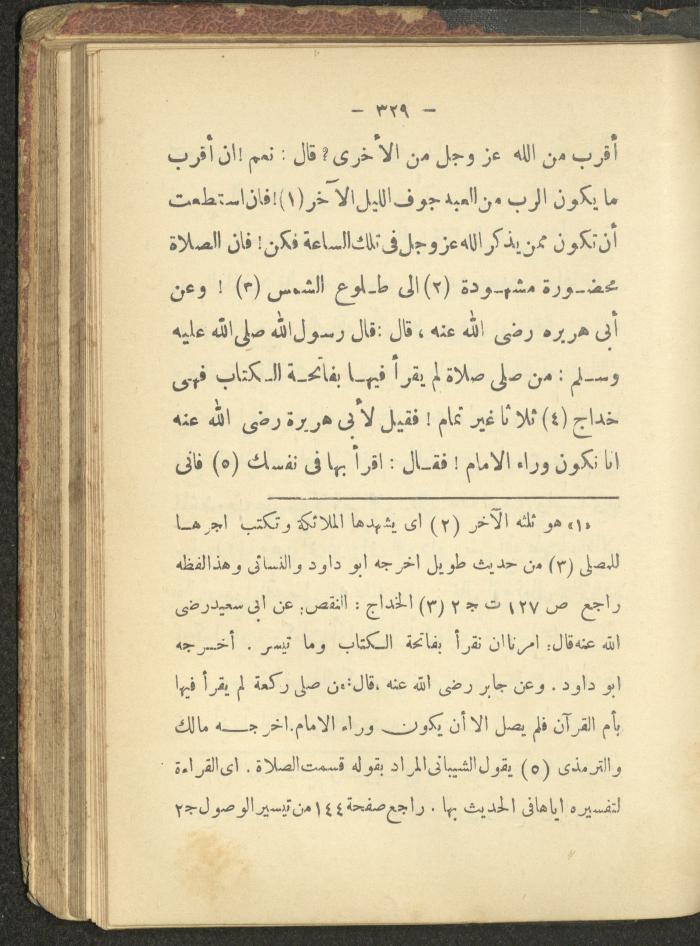 — ٣٢٩ —
أقرب من الله عز وجل من الأخرى ? قال : نعم ! ان أقرب
ما يكون الرب من العبد جوف الليل الآخر (١) ! فان استطعت
أن تكون ممن يذكر الله عز وجل فى تلك الساعة فكن ! فان الصلاة
محضورة مشهودة (٢) الى طلوع الشمس (٣) ! وعن
أبى هريره رضى الله عنه ، قال : قال رسول الله صلى الله عليه
وسلم : من صلى صلاة لم يقرأ فيها بفاتحة الكتاب فهى
خداج (٤) ثلاثا غير تمام ! فقيل لأبى هريرة رضى الله عنه
انا نكون وراء الامام ! فقال : اقرأ بها فى نفسك (٥) فانى
«١» هو ثلثه الآخر (٢) اى يشهدها الملائكة وتكتب اجرها
للمصلى (٣) من حديث طويل اخرجه ابو داود والنسائى وهذالفظه
راجع ص ١٢٧ ت ج ٢ (٣) الخداج : النقص : عن ابى سعيد رضى
الله عنه قال : امرنا ان نقرأ بفاتحة الكتاب وما تيسر . أخرجه
ابو داود . وعن جابر رضى الله عنه ، قال : من صلى ركعة لم يقرأ فيها
بأم القرآن فلم يصل الا أن يكون وراء الامام . اخرجه مالك
والترمذى (٥) يقول الشيبانى المراد بقوله قسمت الصلاة . اى القراءة
لتفسيره اياها فى الحديث بها . راجع صفحة ١٤٤ من تيسير الوصول ج ٢